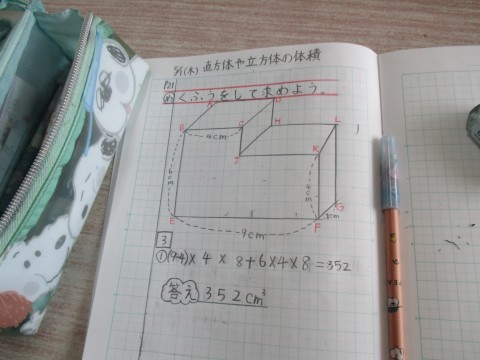 5/1(木) 直方体や立方体の体積
P21
め くふうをして求めよう。
B
C
D
H
L
4cm
J
K
6cm
4cm
E
G
F
9cm
3
①(9-4)×4×8+6×4×8=352
答え 352cm³